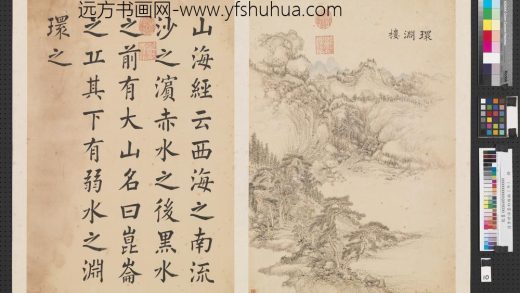 远方书画网-www.yfshuhua.com
環淵樓
山海經云西海之南流
沙之濱赤水之後黑水
之前有大山名曰崑崙
之丘其下有弱水之淵
環之